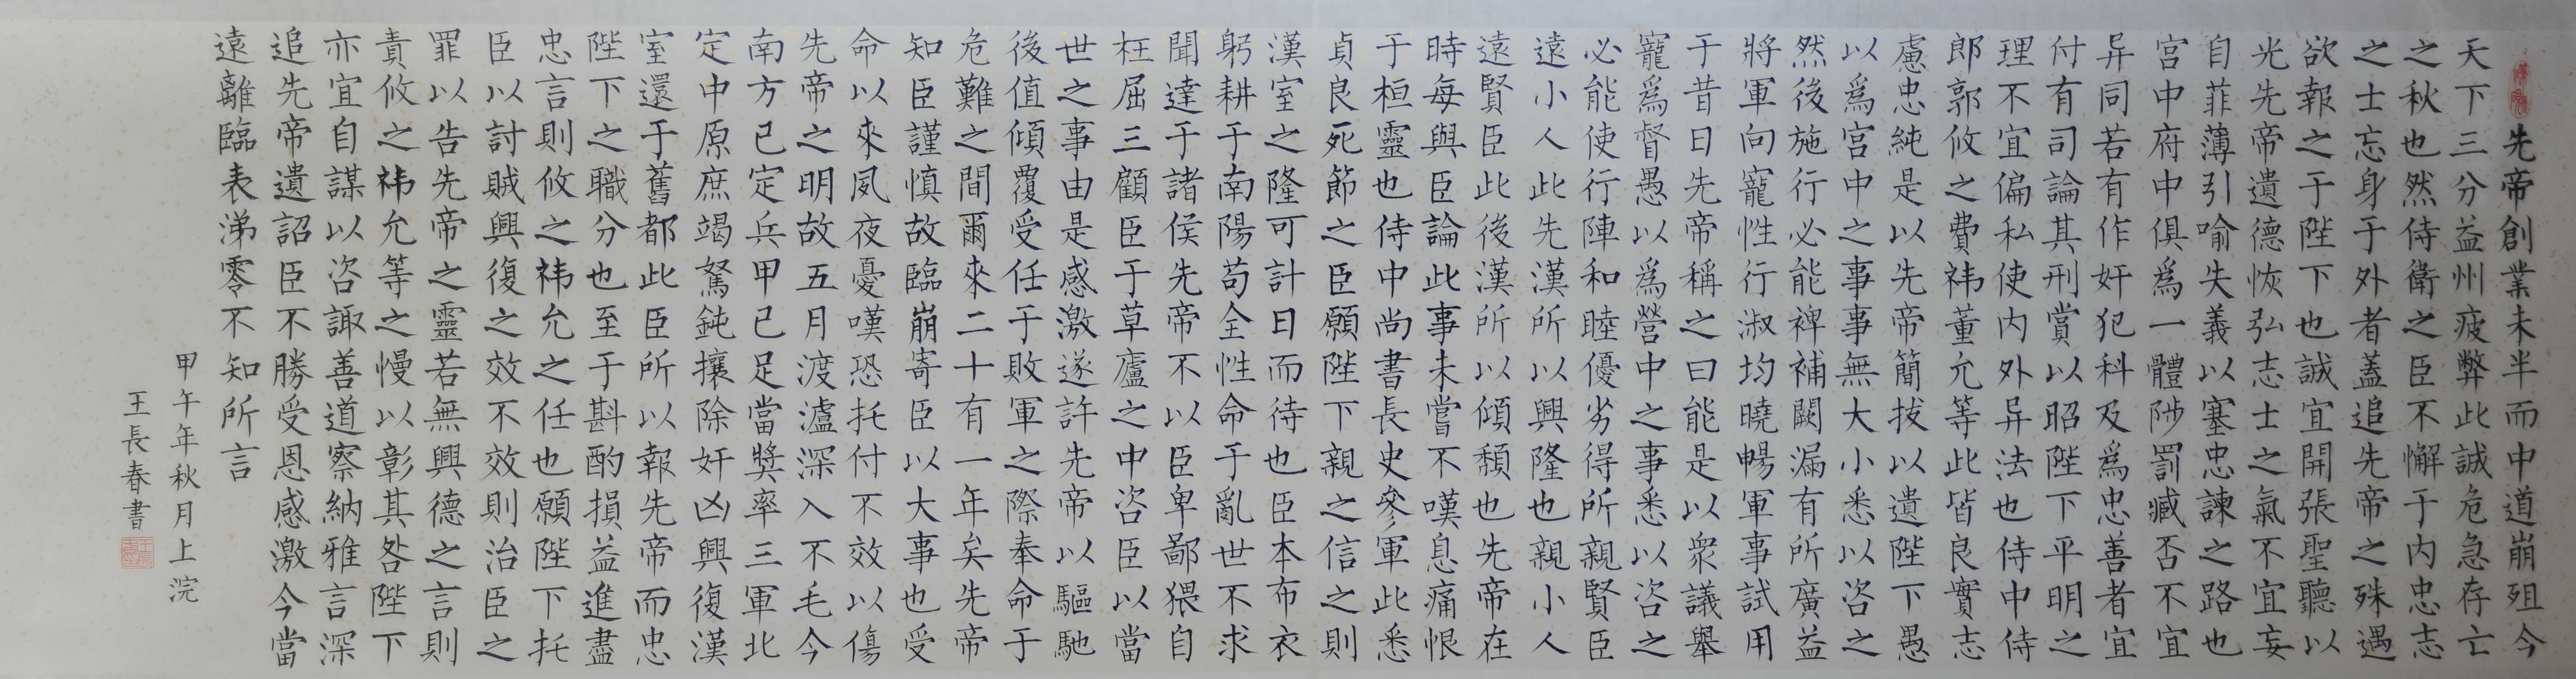 先帝創業未半而中道崩殂今
天下三分益州疲弊此誠危急存亡
之秋也然侍衛之臣不懈于内忠志
之士忘身于外者蓋追先帝之殊遇
欲報之于陛下也誠宜開張聖聽以
光先帝遺德恢弘志士之氣不宜妄
自菲薄引喻失義以塞忠諫之路也
宫中府中俱爲一體陟罰臧否不宜
异同若有作奸犯科及爲忠善者宜
付有司論其刑賞以昭陛下平明之
理不宜偏私使内外异法也侍中侍
郎郭攸之費祎董允等此皆良實志
慮忠純是以先帝簡拔以遺陛下愚
以爲宫中之事事無大小悉以咨之
然後施行必能裨補闕漏有所廣益
將軍向寵性行淑均曉暢軍事試用
于昔日先帝稱之曰能是以衆議舉
寵爲督愚以爲營中之事悉以咨之
必能使行陣和睦優劣得所親賢臣
遠小人此先漢所以興隆也親小人
遠賢臣此後漢所以傾頹也先帝在
時每與臣論此事未嘗不嘆息痛恨
于桓靈也侍中尚書長史參軍此悉
貞良死節之臣願陛下親之信之則
漢室之隆可計日而待也臣本布衣
躬耕于南陽苟全性命于亂世不求
聞達于諸侯先帝不以臣卑鄙猥自
枉屈三顧臣于草廬之中咨臣以當
世之事由是感激遂許先帝以驅馳
後值傾覆受任于敗軍之際奉命于
危難之間爾來二十有一年矣先帝
知臣謹慎故臨崩寄臣以大事也受
命以來夙夜憂嘆恐托付不效以傷
先帝之明故五月渡瀘深入不毛今
南方已定兵甲已足當獎率三軍北
定中原庶竭駑鈍攘除奸凶興復漢
室還于舊都此臣所以報先帝而忠
陛下之職分也至于斟酌損益進盡
忠言則攸之祎允之任也願陛下托
臣以討賊興復之效不效則治臣之
罪以告先帝之靈若無興德之言則
責攸之祎允等之慢以彰其咎陛下
亦宜自謀以咨諏善道察納雅言深
追先帝遺詔臣不勝受恩感激今當
遠離臨表涕零不知所言
甲午年秋月上浣
王長春書